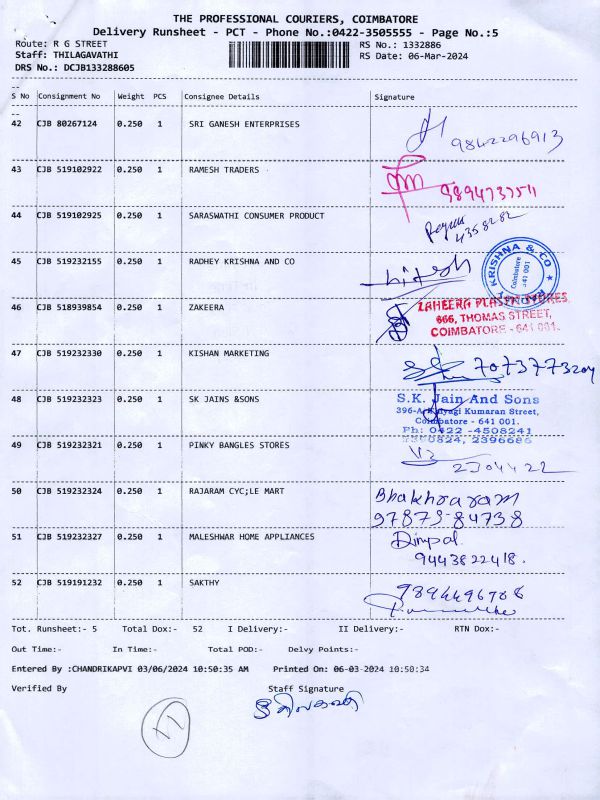 THE PROFESSIONAL COURIERS, COIMBATORE
Delivery Runsheet - PCT - Phone No.:0422-3505555 - Page No.:5
Route: R G STREET
Staff: THILAGAVATHI
DRS No.: DCJB133288605
RS No.: 1332886
RS Date: 06-Mar-2024
S No Consignment No Weight PCS Consignee Details Signature
42 CJB 80267124 0.250 1 SRI GANESH ENTERPRISES
9842296913
43 CJB 519102922 0.250 1 RAMESH TRADERS
9894737511
44 CJB 519102925 0.250 1 SARASWATHI CONSUMER PRODUCT
4358282
45 CJB 519232155 0.250 1 RADHEY KRISHNA AND CO
Hitesh
KRISHNA & CO
Coimbatore
641 001
46 CJB 518939854 0.250 1 ZAKEERA
ZAHEERA PLASTIC STORES
666, THOMAS STREET,
COIMBATORE - 641 001.
47 CJB 519232330 0.250 1 KISHAN MARKETING
7073773204
48 CJB 519232323 0.250 1 SK JAINS &SONS
S.K. Jain And Sons
Kumaran Street,
Coimbatore - 641 001.
Ph: 0422 -4508241
2396686
49 CJB 519232321 0.250 1 PINKY BANGLES STORES
2304422
50 CJB 519232324 0.250 1 RAJARAM CYC;LE MART
Bhakhraram
97873-84738
51 CJB 519232327 0.250 1 MALESHWAR HOME APPLIANCES
Dimpal
9443822418.
52 CJB 519191232 0.250 1 SAKTHY
9894496708
Tot. Runsheet:- 5 Total Dox:- 52 I Delivery:- II Delivery:- RTN Dox:-
Out Time:- In Time:- Total POD:- Delvy Points:-
Entered By :CHANDRIKAPVI 03/06/2024 10:50:35 AM Printed On: 06-03-2024 10:50:34
Verified By Staff Signature